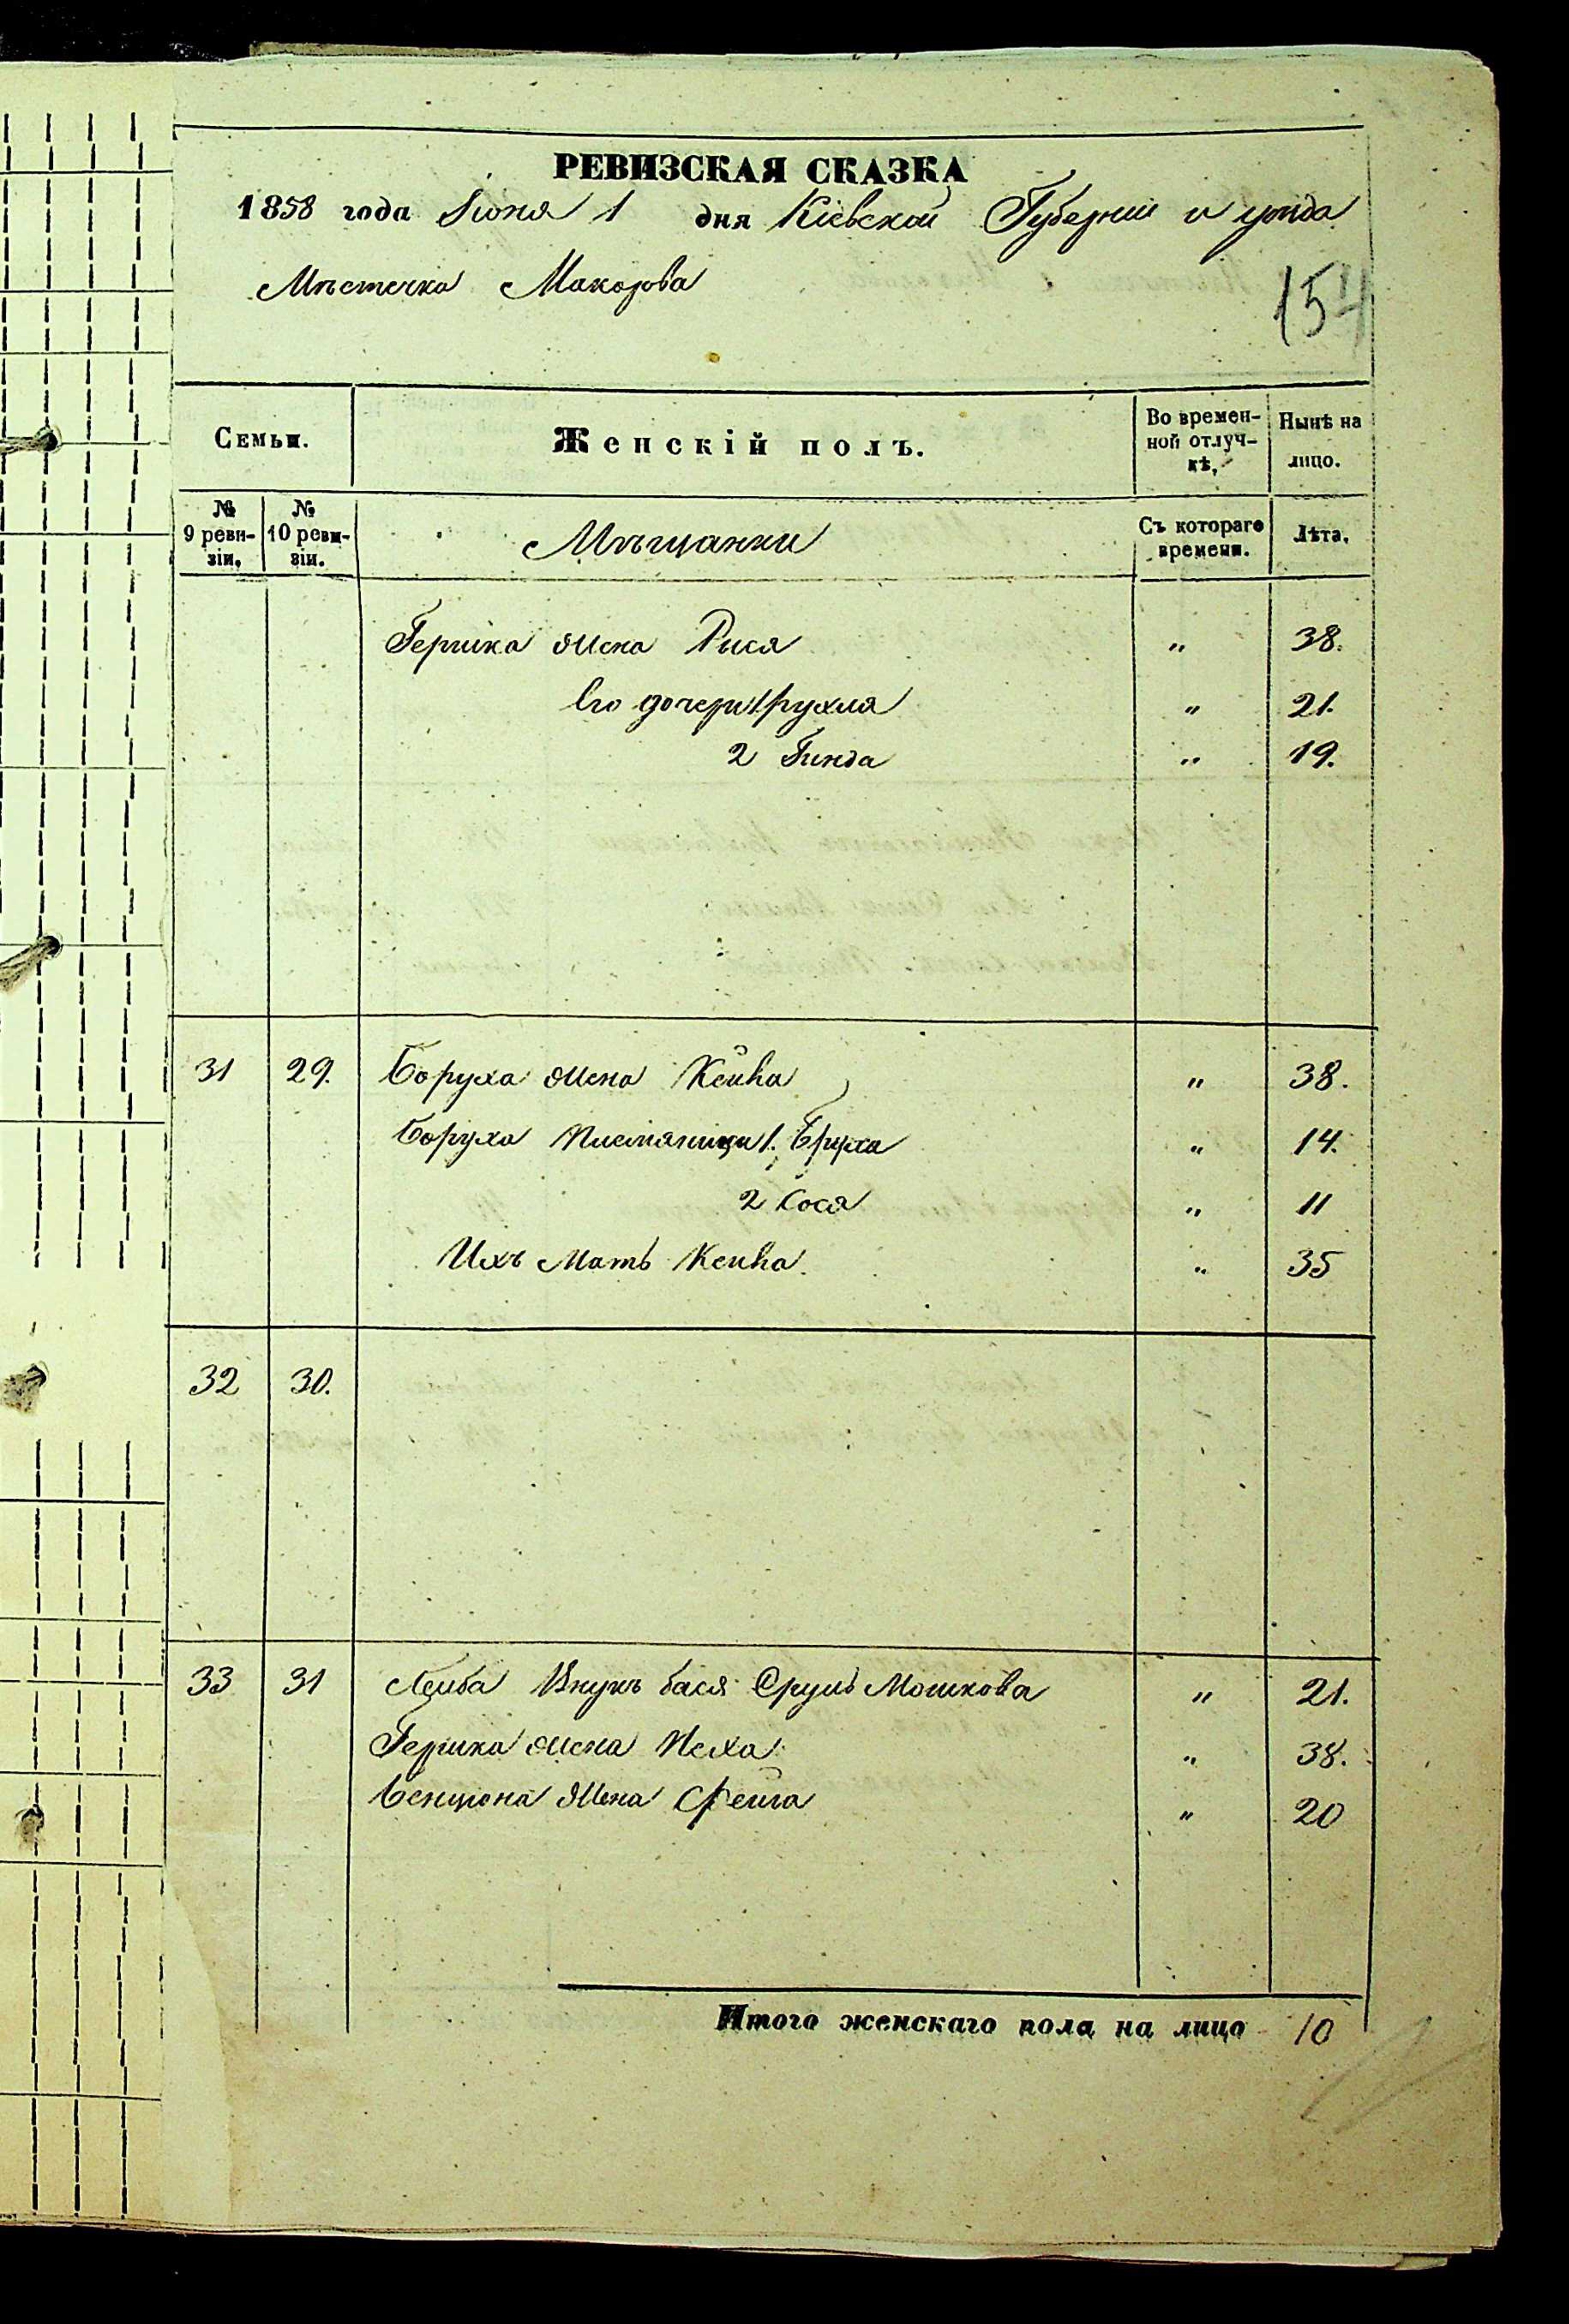 РЕВИЗСКАЯ СКАЗКА
1858 года Іюня 1 дня Кіевской Губерніи и уѣзда
Мѣстечка Макарова
154
Семьи. Женскій полъ. Во времен-ной отлуч-кѣ, Нынѣ на лицо.
№ 9 реви-зіи, № 10 реви-зіи. Мѣщанки Съ котораго времени. Лѣта.
Гершка жена Рися " 38.
Его дочери 1. Рухля " 21.
2 Гинда " 19.
31 29. Боруха жена Кейва " 38.
Боруха племяницы 1. Бруха " 14.
2 Сося " 11
Ихъ Мать Кейва " 35
32 30.
33 31 Лейба Внукъ Бася Сруль Мошкова " 21.
Гершка жена Песха " 38.
Бенциона жена Фейга " 20
Итого женскаго пола на лицо 10